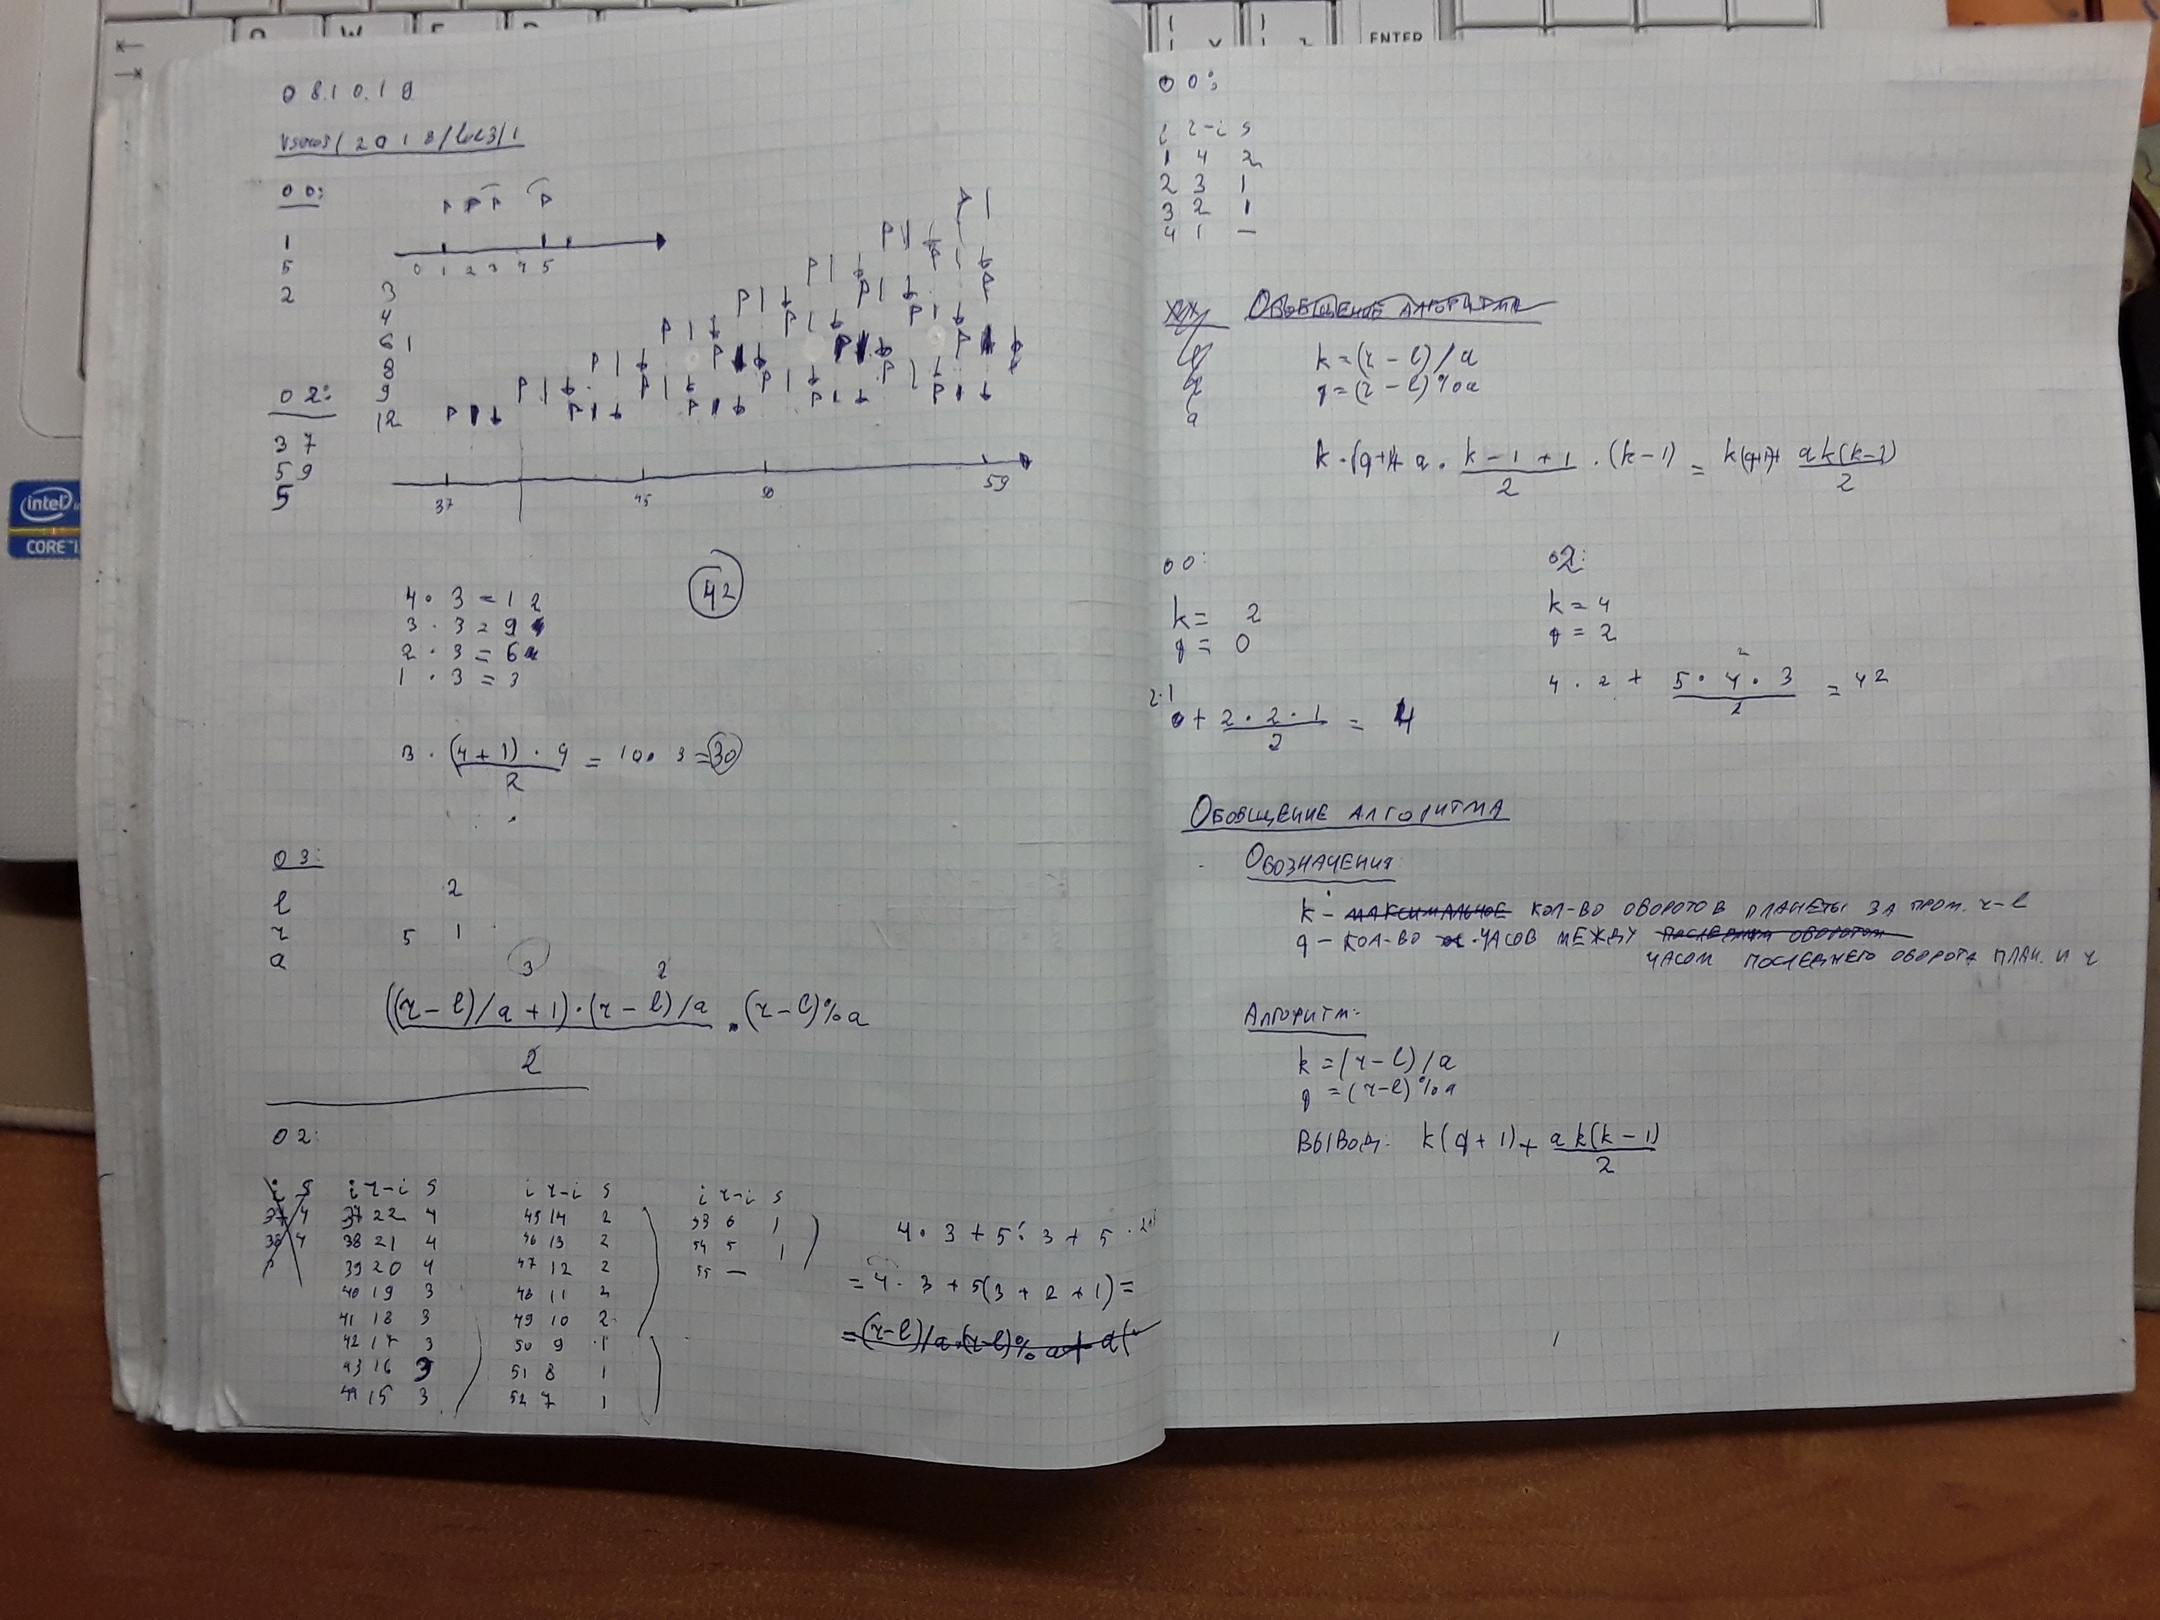 ENTER
intel
CORE
08.10.19
2018/
00:
1
5
2
0 1 2 3 4 5
3
4
6
8
9
12
02:
37
59
5
37 45 50 59
4 · 3 = 12
3 · 3 = 9
2 · 3 = 6
1 · 3 = 3
42
3 · (4 + 1) · 4 / 2 = 10 · 3 = 30
03:
l 2
r 5 1
a
3 2
((r - l)/a + 1) · (r - l)/a / 2 · (r - l)%a
02:
i s
37 4
38 4
i r-i s
37 22 4
38 21 4
39 20 4
40 19 3
41 18 3
42 17 3
43 16 3
44 15 3
i r-i s
45 14 2
46 13 2
47 12 2
48 11 2
49 10 2
50 9 1
51 8 1
52 7 1
i r-i s
53 6 1
54 5 1
55 —
4 · 3 + 5 · 3 + 5 · 2
= 4 · 3 + 5(3 + 2 + 1) =
= (r-l)/a · (r-l)%a + a(
00:
i r-i s
1 4 2
2 3 1
3 2 1
4 1 —
ОБОБЩЕНИЕ АЛГОРИТМА
k = (r - l)/a
q = (r - l)%a
a
k · (q+1) + a · (k - 1 + 1)/2 · (k - 1) = k(q+1) + ak(k-1)/2
00:
k = 2
q = 0
2·1
0 + 2 · 2 · 1 / 2 = 4
02:
k = 4
q = 2
4 · 2 + 5 · 4 · 3 / 2 = 42
ОБОБЩЕНИЕ АЛГОРИТМА
ОБОЗНАЧЕНИЯ:
k - МАКСИМАЛЬНОЕ КОЛ-ВО ОБОРОТОВ ПЛАНЕТЫ ЗА ПРОМ. r-l
q - КОЛ-ВО ЧАСОВ МЕЖДУ ПОСЛЕДНИМ ОБОРОТОМ
ЧАСОМ ПОСЛЕДНЕГО ОБОРОТА ПЛАН. И r
АЛГОРИТМ:
k = (r - l)/a
q = (r-l)%a
ВЫВОД: k(q + 1) + ak(k - 1)/2